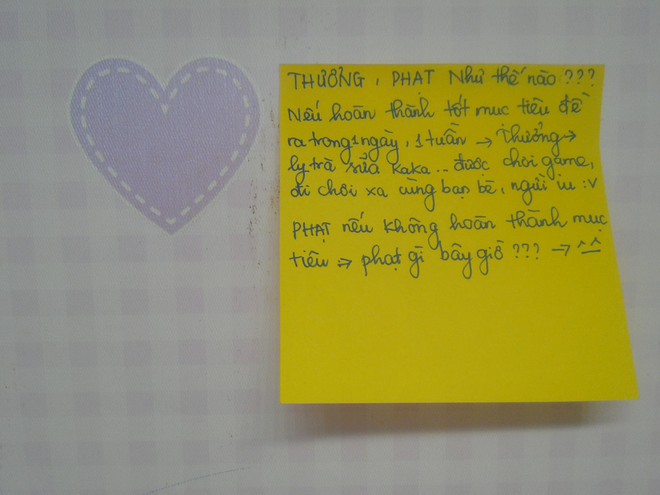 THƯỞNG, PHẠT Như thế nào ???
Nếu hoàn thành tốt mục tiêu đề
ra trong 1 ngày, 1 tuần → Thưởng →
ly trà sữa KaKa.. được chơi game,
đi chơi xa cùng bạn bè, người iu :v
PHẠT nếu không hoàn thành mục
tiêu => phạt gì bây giờ ??? → ^^